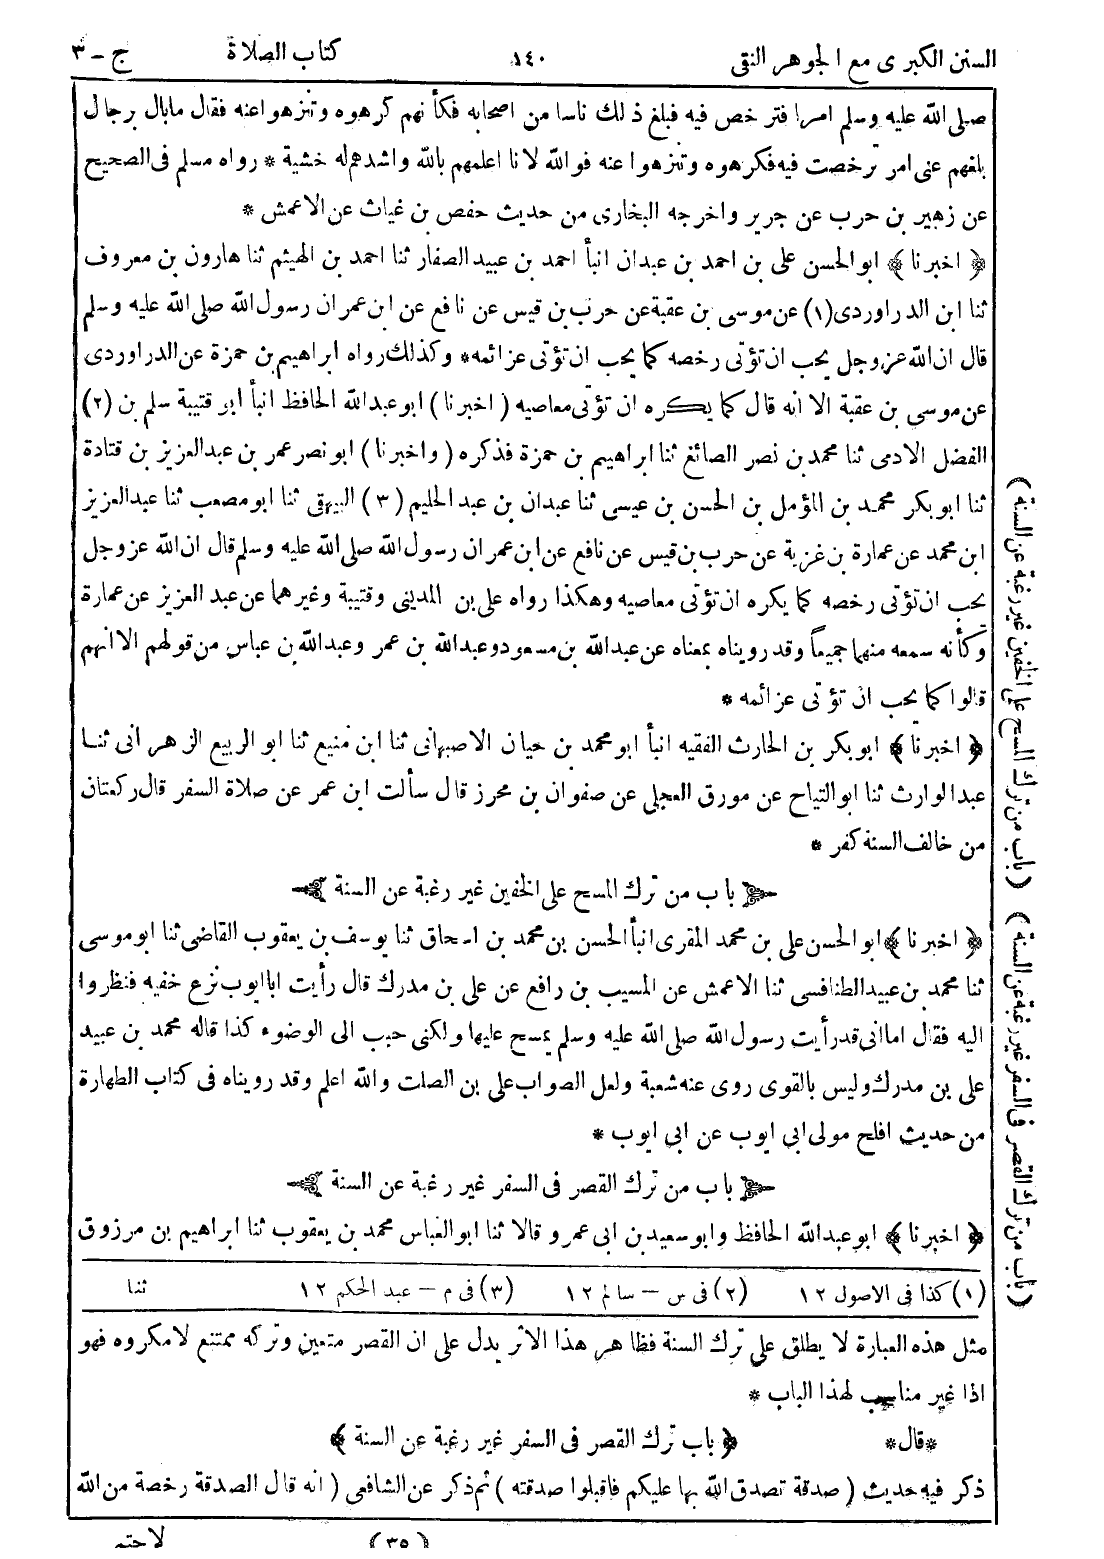 السنن الكبرى مع الجوهر النقى ١٤٠ كتاب الصلاة ج - ٣
صلى الله عليه وسلم امرا فترخص فيه فبلغ ذلك ناسا من اصحابه فكأنهم كرهوه وتنزهوا عنه فقال مابال رجال
بلغهم عنى امر ترخصت فيه فكرهوه وتنزهوا عنه فوالله لانا اعلمهم بالله واشدهم له خشية * رواه مسلم فى الصحيح
عن زهير بن حرب عن جرير واخرجه البخارى من حديث حفص بن غياث عن الاعمش *
﴿ اخبرنا ﴾ ابو الحسن على بن احمد بن عبدان انبأ احمد بن عبيد الصفار ثنا احمد بن الهيثم ثنا هارون بن معروف
ثنا ابن الدراوردى (١) عن موسى بن عقبة عن حرب بن قيس عن نافع عن ابن عمر ان رسول الله صلى الله عليه وسلم
قال ان الله عز وجل يحب ان تؤتى رخصه كما يحب ان تؤتى عزائمه * وكذلك رواه ابراهيم بن حمزة عن الدراوردى
عن موسى بن عقبة الا انه قال كما يكره ان تؤتى معاصيه ( اخبرنا ) ابو عبد الله الحافظ انبأ ابو قتيبة سلم بن (٢)
الفضل الادمى ثنا محمد بن نصر الصائغ ثنا ابراهيم بن حمزة فذكره ( واخبرنا ) ابو نصر عمر بن عبد العزيز بن قتادة
ثنا ابو بكر محمد بن المؤمل بن الحسن بن عيسى ثنا عبدان بن عبد الحليم (٣) البيهقى ثنا ابو مصعب ثنا عبد العزيز
ابن محمد عن عمارة بن غزية عن حرب بن قيس عن نافع عن ابن عمر ان رسول الله صلى الله عليه وسلم قال ان الله عز وجل
يحب ان تؤتى رخصه كما يكره ان تؤتى معاصيه وهكذا رواه على بن المدينى وقتيبة وغيرهما عن عبد العزيز عن عمارة
وكأنه سمعه منهما جميعاً وقد رويناه بمعناه عن عبد الله بن مسعود وعبد الله بن عمر وعبد الله بن عباس من قولهم الا انهم
قالوا كما يحب ان تؤتى عزائمه *
﴿ اخبرنا ﴾ ابو بكر بن الحارث الفقيه انبأ ابو محمد بن حيان الاصبهانى ثنا ابن منيع ثنا ابو الربيع الزهرانى ثنا
عبد الوارث ثنا ابو التياح عن مورق العجلى عن صفوان بن محرز قال سألت ابن عمر عن صلاة السفر قال ركعتان
من خالف السنة كفر *
باب من ترك المسح على الخفين غير رغبة عن السنة
﴿ اخبرنا ﴾ ابو الحسن على بن محمد المقرى انبأ الحسن بن محمد بن اسحاق ثنا يوسف بن يعقوب القاضى ثنا ابو موسى
ثنا محمد بن عبيد الطنافسى ثنا الاعمش عن المسيب بن رافع عن على بن مدرك قال رأيت ابا ايوب نزع خفيه فنظروا
اليه فقال اما انى قد رأيت رسول الله صلى الله عليه وسلم يمسح عليها ولكنى حبب الى الوضوء كذا قاله محمد بن عبيد
على بن مدرك وليس بالقوى روى عنه شعبة ولعل الصواب على بن الصلت والله اعلم وقد رويناه فى كتاب الطهارة
من حديث افلح مولى ابى ايوب عن ابى ايوب *
باب من ترك القصر فى السفر غير رغبة عن السنة
﴿ اخبرنا ﴾ ابو عبد الله الحافظ وابو سعيد بن ابى عمرو قالا ثنا ابو العباس محمد بن يعقوب ثنا ابراهيم بن مرزوق
(١) كذا فى الاصول ١٢ (٢) فى س - سالم ١٢ (٣) فى م - عبد الحكم ١٢ ثنا
مثل هذه العبارة لا يطلق على ترك السنة فظاهر هذا الاثر يدل على ان القصر متعين وتركه ممتنع لا مكروه فهو
اذا غير مناسب لهذا الباب *
*قال* ﴿ باب ترك القصر فى السفر غير رغبة عن السنة ﴾
ذكر فيه حديث ( صدقة تصدق الله بها عليكم فاقبلوا صدقته ) ثم ذكر عن الشافعى ( انه قال الصدقة رخصة من الله
(٣٥) لاحتم
(باب من ترك المسح على الخفين غير رغبة عن السنة)
(باب من ترك القصر فى السفر غير رغبة عن السنة)